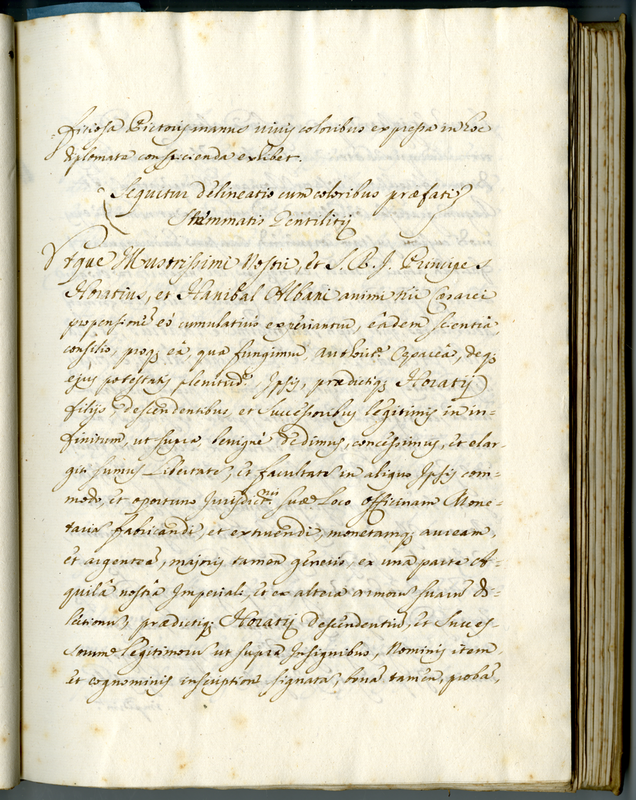 ficiosa Pictoris manus vivis coloribus expressa in hoc
diplomate conspicienda exhibet.
Sequitur delineatio cum coloribus præfati
Stemmatis Gentilitij
Utque Illustrissimi Nostri, et S. R. J. Principes
Horatius, et Hanibal Albani animi hîc Cæsarei
propensionẽ eò cumulatiùs experiantur, eâdem scientia
consilio, proq; eâ, qua fungimur, authoritᵉ Cæsareâ, deq;
ejus potestatis plenitudᵉ Ipsis, prædictiq; Horatij
filijs descendentibus, et Successoribus legitimis in in-
finitum, ut supra, benignè dedimus, concessimus, et elar-
giti sumus Libertatẽ, et facultatẽ in aliquo Ipsis com-
modo, et oportuno Jurisdictⁿⁱˢ suæ Loco officinam Mone-
tariã fabricandi et extruendi, monetamq; auream,
et argenteã, majoris tamen generis, ex una parte A-
quilâ nostrâ Imperiali, et ex altera armorũ suarũ di-
lectionũ, prædictiq; Horatij descendentiũ, et Succes-
sorum legitimorũ ut supra Insignibus, Nominis item
et cognominis inscriptionẽ signatã, bonã tamen, probã,